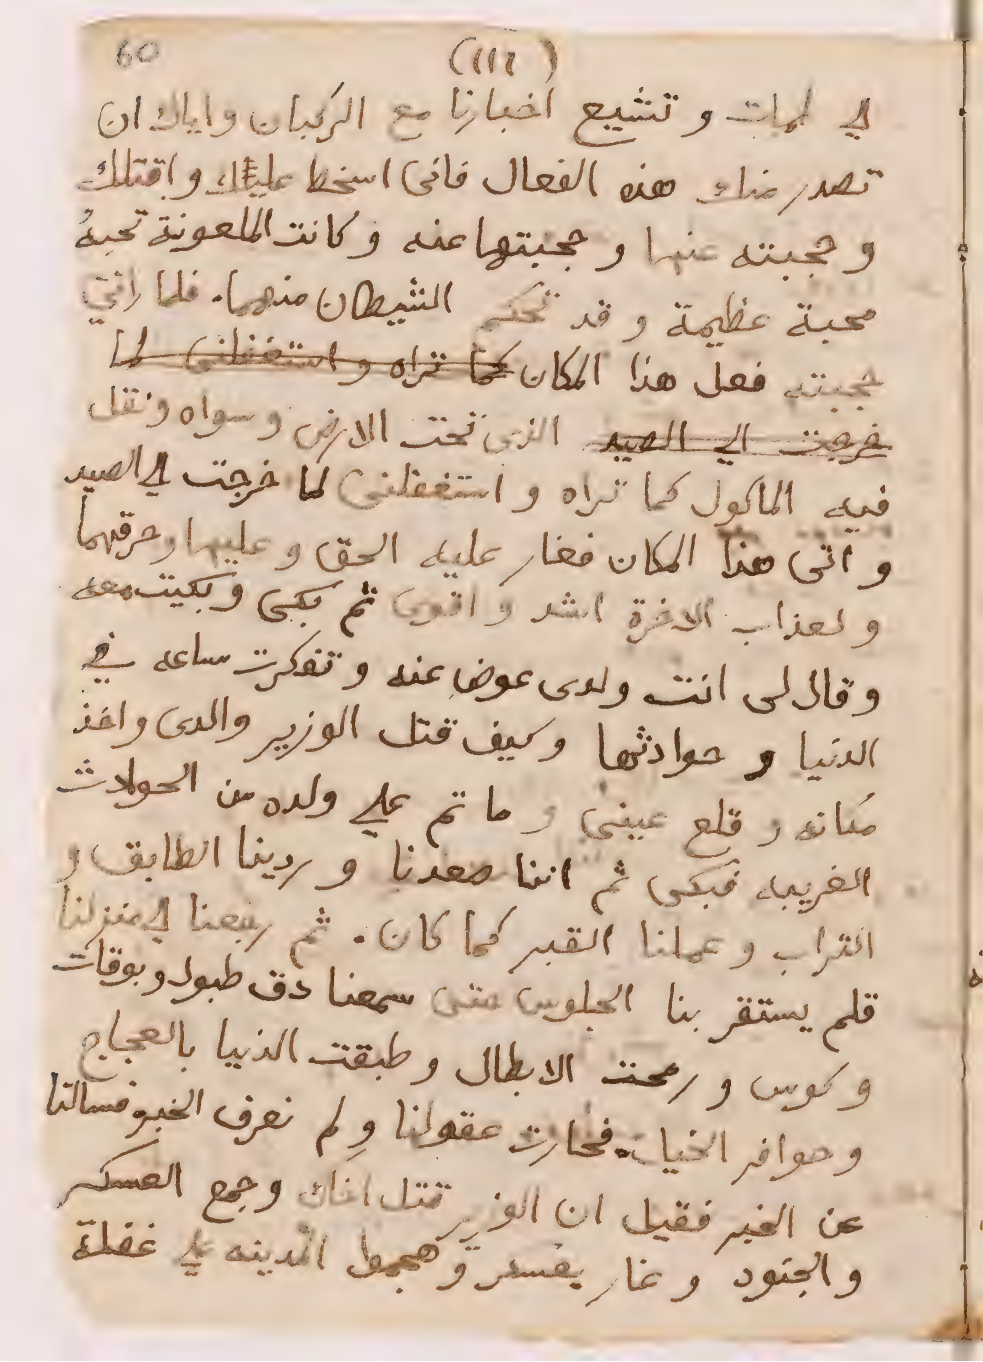 60
(١١٦)
الي الممات و تشيع اخبارنا مع الركبان واياك ان
تصدر منك هذه الفعال فانى اسخط عليك واقتلك
و حجبته عنها و حجبتها عنه و كانت الملعونة تحبهُ
محبة عظيمة و قد تحكم الشيطان منهما. فلما راني
حجبته فعل هذا المكان كما تراه و استغفلنى لما
خرجت الي الصيد الذى تحت الارض وسواه ونقل
فيه الماكول كما تراه و استغفلنى لما خرجت الي الصيد
و اتى هذا المكان فغار عليه الحق و عليها وحرقهما
و لعذاب الاخرة اشد و اقوى ثم بكى وبكيت معه
و قال لى انت ولدى عوض عنه و تفكرت ساعه في
الدنيا و حوادثها وكيف قتل الوزير والدى واخذ
مكانه و قلع عينى و ما تم علي ولده من الحوادث
الغريبه فبكى ثم اننا صعدنا و ردينا الطابق و
التراب و عملنا القبر كما كان. ثم رجعنا الي منزلنا
فلم يستقر بنا الجلوس حتى سمعنا دق طبول وبوقات
و كوس و رمحت الابطال و طبقت الدنيا بالعجاج
و حوافر الخيل. فحارت عقولنا ولم نعرف الخبر فسالنا
عن الخبر فقيل ان الوزير قتل اخاك وجمع العسكر
و الجنود و غار بعسكر وهجموا المدينه علي غفلة